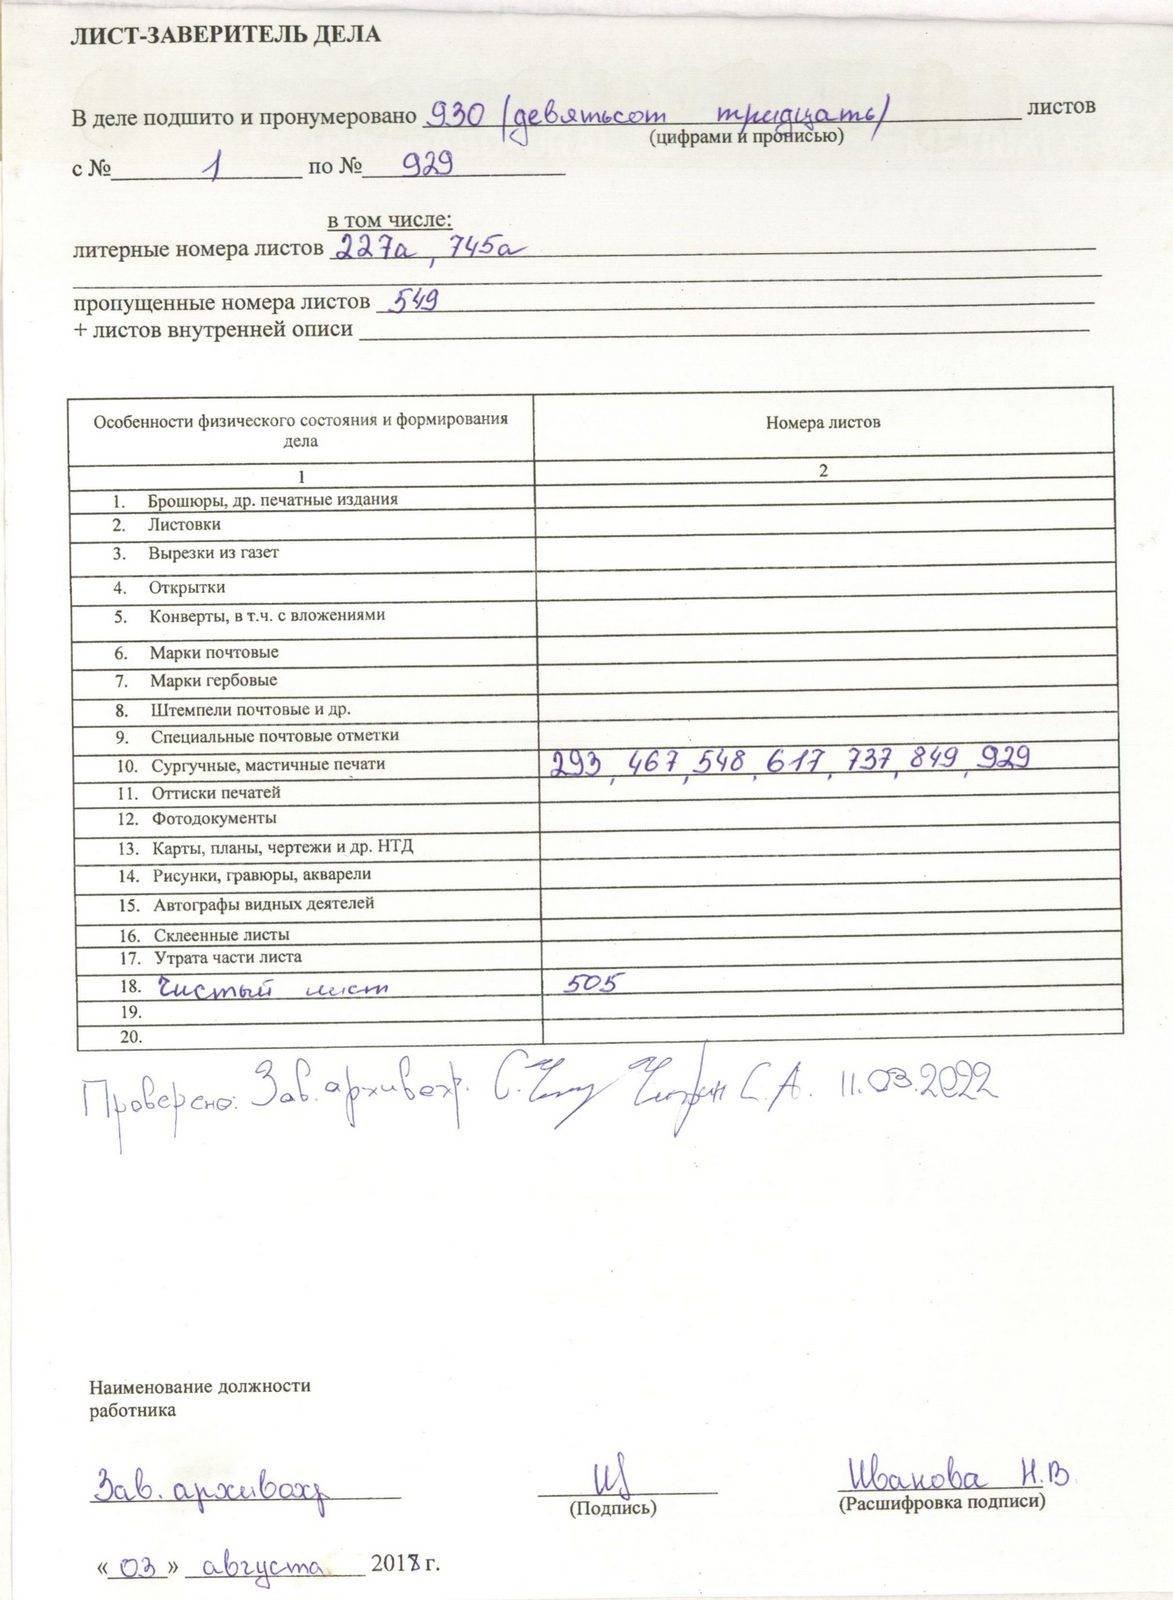 ЛИСТ-ЗАВЕРИТЕЛЬ ДЕЛА
В деле подшито и пронумеровано 930 (девятьсот тридцать) листов
(цифрами и прописью)
с № 1 по № 929
в том числе:
литерные номера листов 227а, 745а
пропущенные номера листов 549
+ листов внутренней описи
Особенности физического состояния и формирования дела Номера листов
1 2
1. Брошюры, др. печатные издания
2. Листовки
3. Вырезки из газет
4. Открытки
5. Конверты, в т.ч. с вложениями
6. Марки почтовые
7. Марки гербовые
8. Штемпели почтовые и др.
9. Специальные почтовые отметки
10. Сургучные, мастичные печати 293, 467, 548, 617, 737, 849, 929
11. Оттиски печатей
12. Фотодокументы
13. Карты, планы, чертежи и др. НТД
14. Рисунки, гравюры, акварели
15. Автографы видных деятелей
16. Склеенные листы
17. Утрата части листа
18. Чистый лист 505
19.
20.
Проверено: Зав. архивохр. С.А. 11.03.2022
Наименование должности
работника
Зав. архивохр Иванова Н.В.
(Подпись) (Расшифровка подписи)
«03» августа 2018 г.